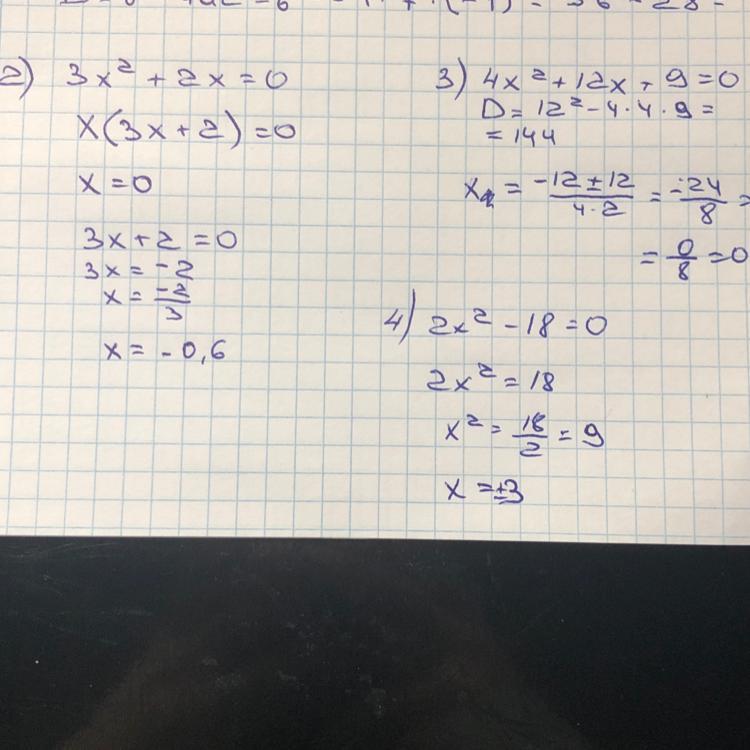 2) 3x² + 2x = 0
x(3x + 2) = 0
x = 0
3x + 2 = 0
3x = -2
x = -2/3
x = -0,6
3) 4x² + 12x + 9 = 0
D = 12² - 4·4·9 =
= 144
x = -12 ± 12 / 4·2 = -24/8 =
= 0/8 = 0
4) 2x² - 18 = 0
2x² = 18
x² = 18/2 = 9
x = ±3